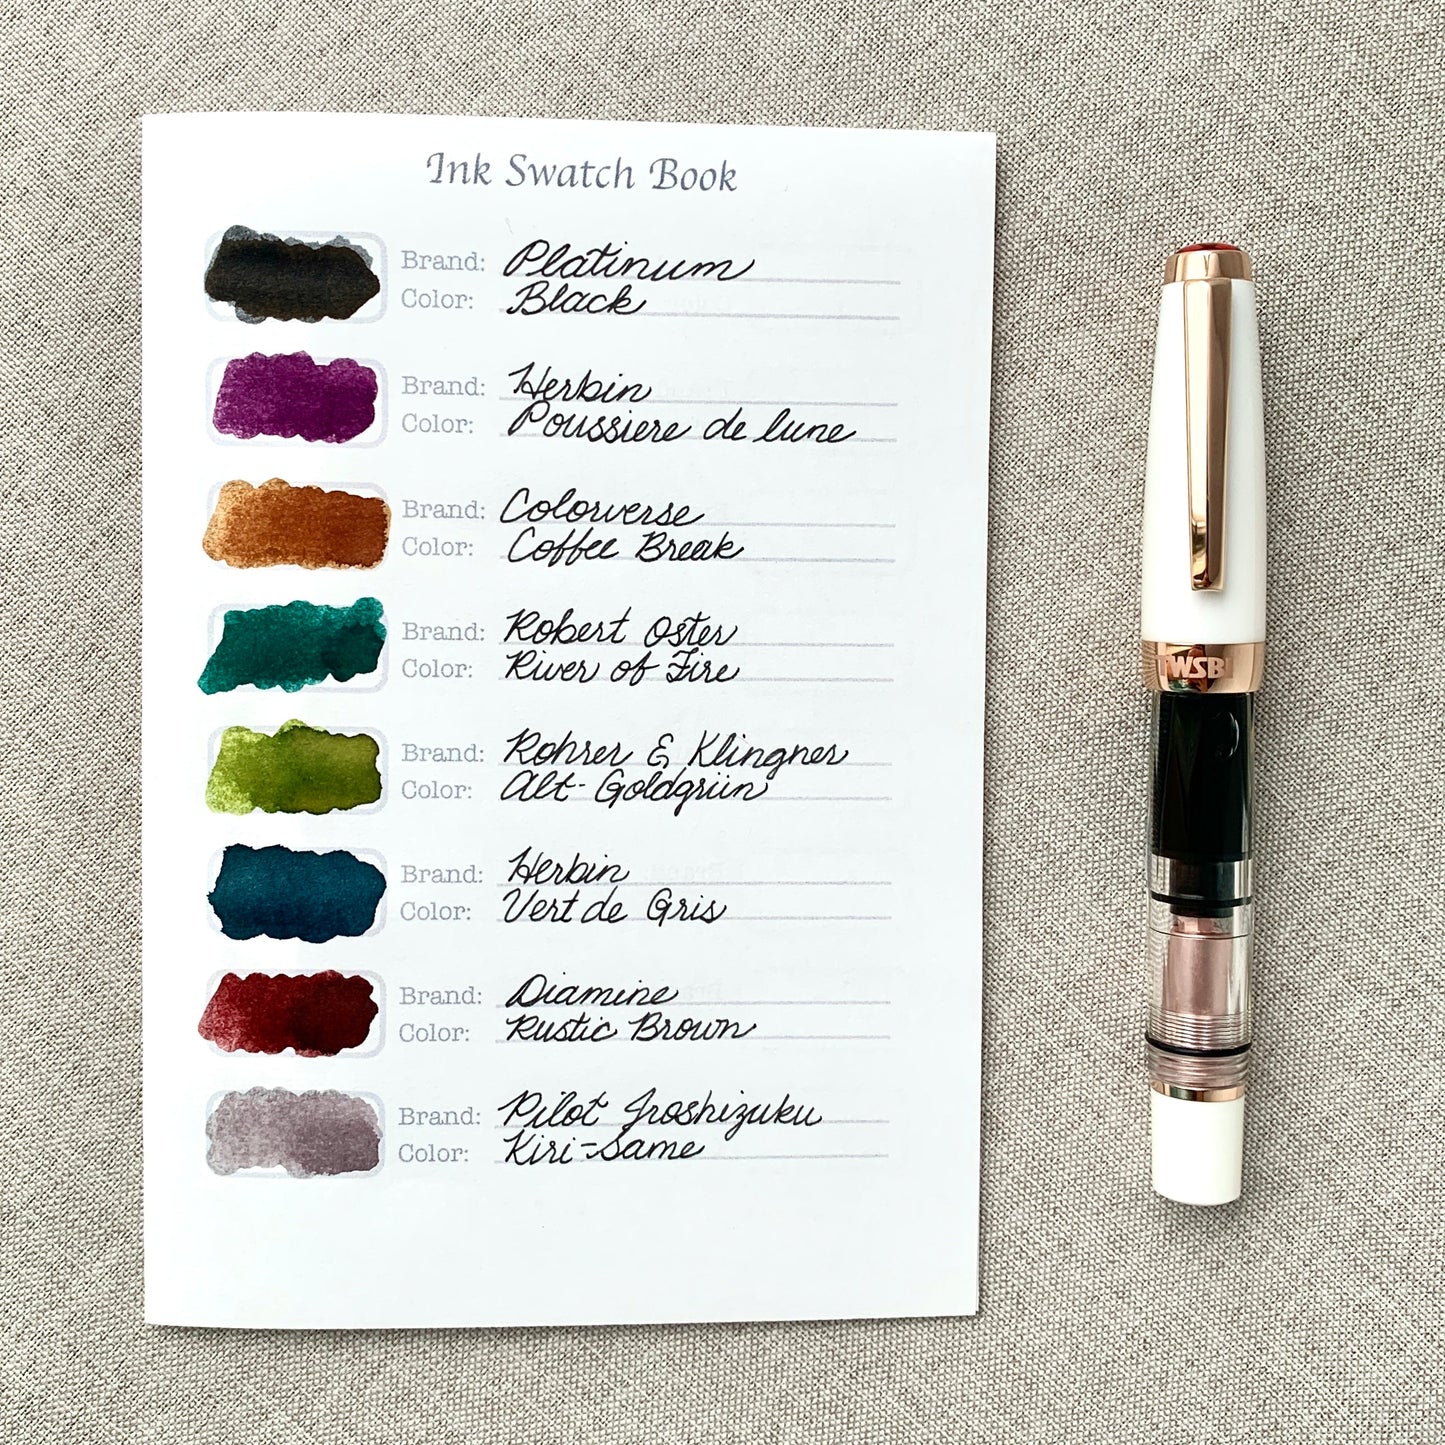 Ink Swatch Book
Brand: Platinum
Color: Black
Brand: Herbin
Color: Poussiere de lune
Brand: Colorverse
Color: Coffee Break
Brand: Robert Oster
Color: River of Fire
Brand: Rohrer & Klingner
Color: Alt-Goldgrün
Brand: Herbin
Color: Vert de Gris
Brand: Diamine
Color: Rustic Brown
Brand: Pilot Iroshizuku
Color: Kiri-Same
TWSBI